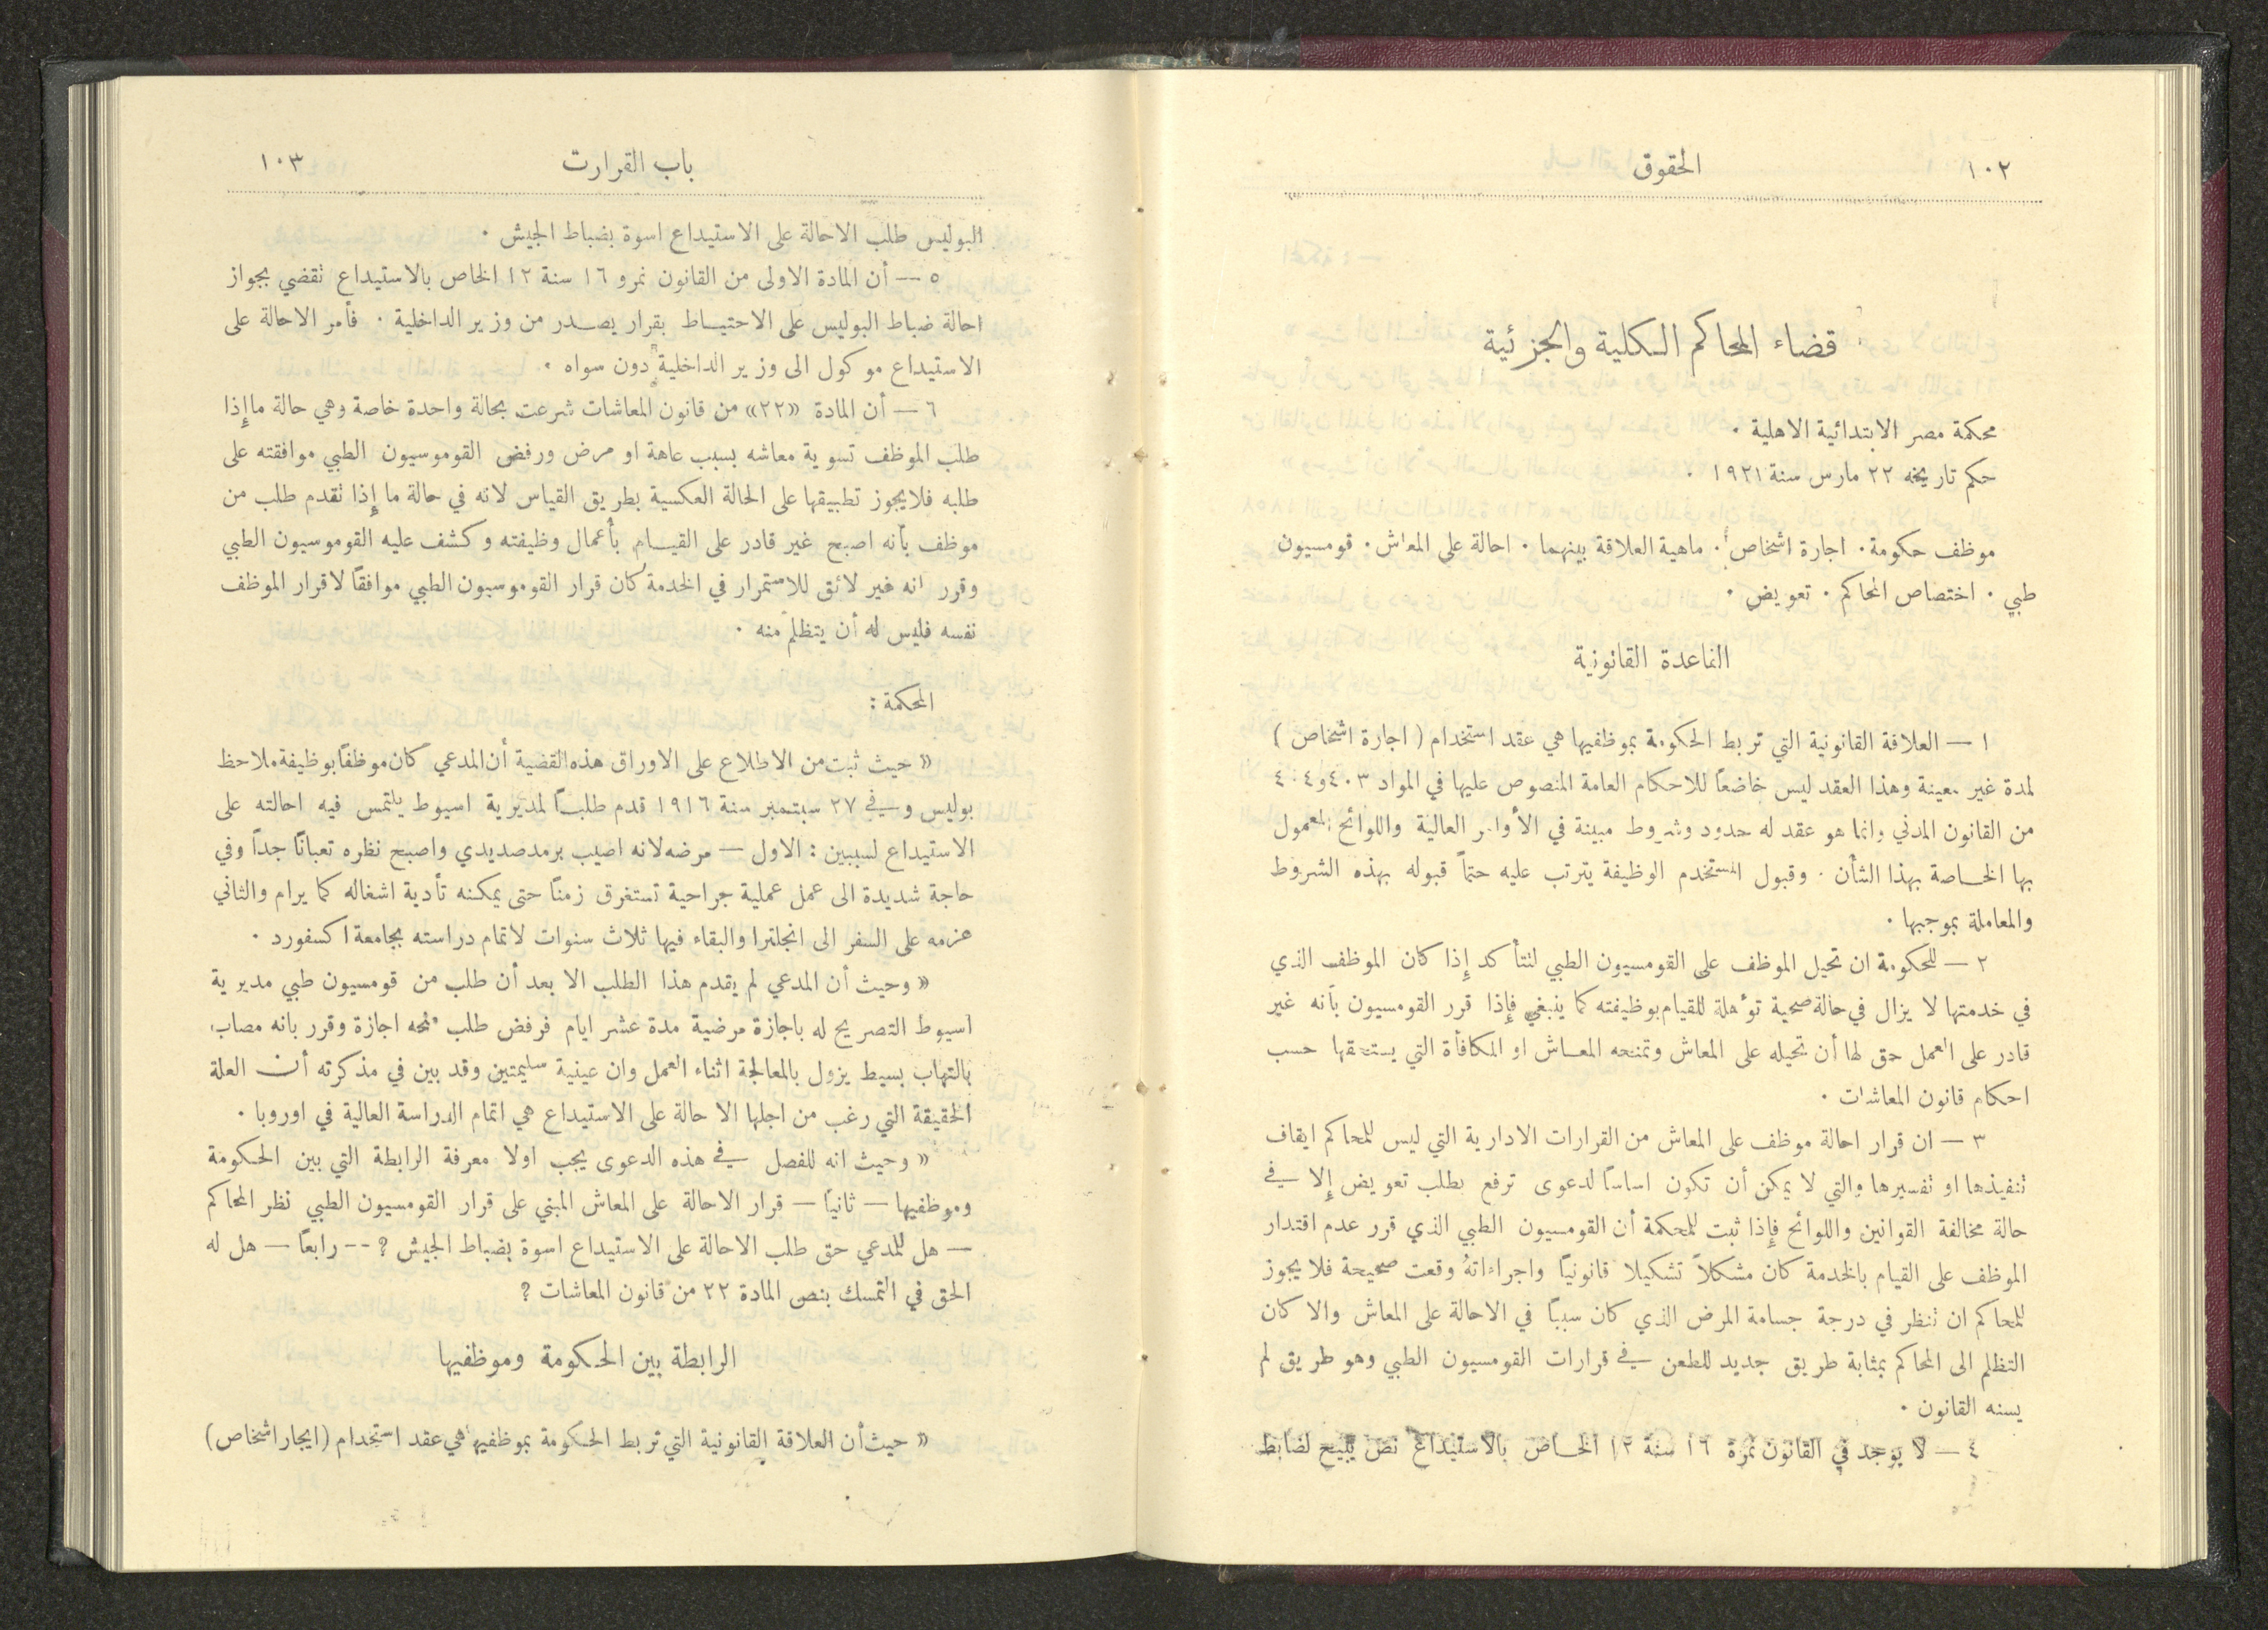 ١٠٢
الحقوق
قضاء المحاكم الكلية والجزئية
محكمة مصر الابتدائية الاهلية ٠
حكم تاريخه ٢٢ مارس سنة ١٩٢١ ٠
موظف حكومة ٠ اجارة اشخاص ٠ ماهية العلاقة بينهما ٠ احالة على المعاش ٠ قومسيون
طبي ٠ اختصاص المحاكم ٠ تعويض ٠
القاعدة القانونية
١ — العلاقة القانونية التي تربط الحكومة بموظفيها هي عقد استخدام ( اجارة اشخاص )
لمدة غير معينة وهذا العقد ليس خاضعاً للاحكام العامة المنصوص عليها في المواد ٤٠٣ و٤٠٤
من القانون المدني وانما هو عقد له حدود وشروط مبينة في الأوامر العالية واللوائح المعمول
بها الخاصة بهذا الشأن ٠ وقبول المستخدم الوظيفة يترتب عليه حتماً قبوله بهذه الشروط
والمعاملة بموجبها ٠
٢ — للحكومة ان تحيل الموظف على القومسيون الطبي لتتأكد إذا كان الموظف الذي
في خدمتها لا يزال في حالة صحية تؤهلة للقيام بوظيفته كما ينبغي فإذا قرر القومسيون بأنه غير
قادر على العمل حق لها أن تحيله على المعاش وتمنحه المعاش او المكافأة التي يستحقها حسب
احكام قانون المعاشات ٠
٣ — ان قرار احالة موظف على المعاش من القرارات الادارية التي ليس للمحاكم ايقاف
تنفيذها او تفسيرها والتي لا يمكن أن تكون اساساً لدعوى ترفع بطلب تعويض إلا في
حالة مخالفة القوانين واللوائح فإذا ثبت للمحكمة أن القومسيون الطبي الذي قرر عدم اقتدار
الموظف على القيام بالخدمة كان مشكلاً تشكيلا قانونياً واجراءاتهُ وقعت صحيحة فلا يجوز
للمحاكم ان تنظر في درجة جسامة المرض الذي كان سبباً في الاحالة على المعاش والا كان
التظلم الى المحاكم بمثابة طريق جديد للطعن في قرارات القومسيون الطبي وهو طريق لم
يسنه القانون ٠
٤ — لا يوجد في القانون نمرة ١٦ سنة ١٢ الخاص بالاستيداع نص يبيح لضابط
باب القرارت
١٠٣
البوليس طلب الاحالة على الاستيداع اسوة بضباط الجيش ٠
٥ — أن المادة الاولى من القانون نمرو ١٦ سنة ١٢ الخاص بالاستيداع تقضي بجواز
احالة ضباط البوليس على الاحتياط بقرار يصدر من وزير الداخلية ٠ فأمر الاحالة على
الاستيداع موكول الى وزير الداخلية دون سواه ٠
٦ — أن المادة «٢٢» من قانون المعاشات شرعت بحالة واحدة خاصة وهي حالة ما إذا
طلب الموظف تسوية معاشه بسبب عاهة او مرض ورفض القوموسيون الطبي موافقته على
طلبه فلا يجوز تطبيقها على الحالة العكسية بطريق القياس لانه في حالة ما إذا تقدم طلب من
موظف بأنه اصبح غير قادر على القيام بأعمال وظيفته وكشف عليه القوموسيون الطبي
وقرر انه غير لائق للاستمرار في الخدمة كان قرار القوموسيون الطبي موافقاً لاقرار الموظف
نفسه فليس له أن يتظلم منه ٠
المحكمة :
« حيث ثبت من الاطلاع على الاوراق هذه القضية أن المدعي كان موظفاً بوظيفة ملاحظ
بوليس وفي ٢٧ سبتمبر سنة ١٩١٦ قدم طلباً لمديرية اسيوط يلتمس فيه احالته على
الاستيداع لسببين : الاول — مرضه لانه اصيب برمد صديدي واصبح نظره تعباناً جداً وفي
حاجة شديدة الى عمل عملية جراحية تستغرق زمناً حتى يمكنه تأدية اشغاله كما يرام والثاني
عزمه على السفر الى انجلترا والبقاء فيها ثلاث سنوات لاتمام دراسته بجامعة اكسفورد ٠
« وحيث أن المدعي لم يقدم هذا الطلب الا بعد أن طلب من قومسيون طبي مديرية
اسيوط التصريح له باجازة مرضية مدة عشر ايام فرفض طلب منحه اجازة وقرر بانه مصاب
بالتهاب بسيط يزول بالمعالجة اثناء العمل وان عينية سليمتين وقد بين في مذكرته أن العلة
الحقيقة التي رغب من اجلها الاحالة على الاستيداع هي اتمام الدراسة العالية في اوروبا ٠
« وحيث انه للفصل في هذه الدعوى يجب اولا معرفة الرابطة التي بين الحكومة
وموظفيها — ثانياً — قرار الاحالة على المعاش المبني على قرار القومسيون الطبي نظر المحاكم
— هل للمدعي حق طلب الاحالة على الاستيداع اسوة بضباط الجيش ? -- رابعاً — هل له
الحق في التمسك بنص المادة ٢٢ من قانون المعاشات ?
الرابطة بين الحكومة وموظفيها
« حيث أن العلاقة القانونية التي تربط الحكومة بموظفيها هي عقد استخدام (ايجار اشخاص)